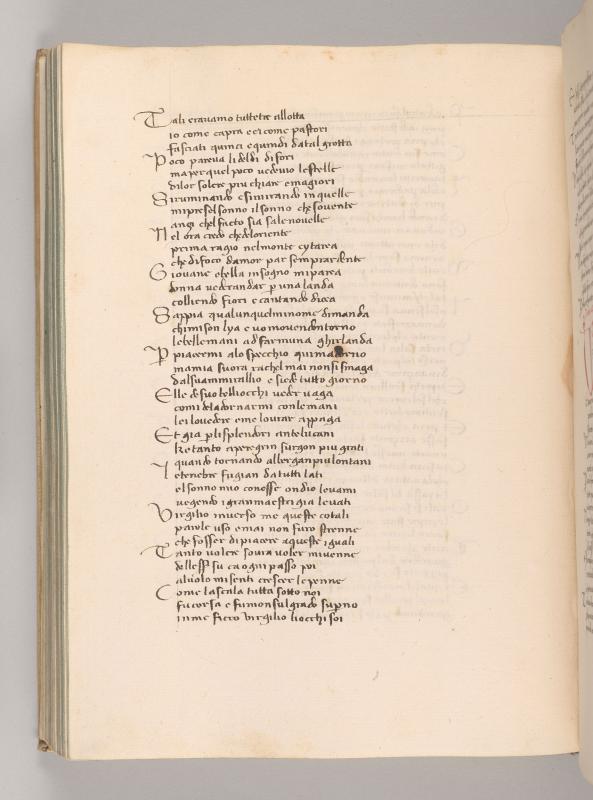 Tali eravamo tuttetre allotta
io come capra e ei come pastori
fasciati quinci e quindi datal grotta
Poco pareva li del di fori
ma per quel poco vedevio le stelle
di lor solere piu chiare e magiori
Si ruminando e si mirando in quelle
mi presel sonno il sonno che sovente
anzi chel facto sia sa le novelle
Nel ora credo che deloriente
prima ragio nel monte cytarea
che di foco damor par semprardente
Giovane e bella in sogno mi parea
donna vedere andar p una landa
colliendo fiori e cantando dicea
Sappia qualunquel mi nome dimanda
chi mi son lya e vo movendo ntorno
le belle mani ad farmi una ghirlanda
P piacermi alo specchio qui madorno
ma mia suora rachel mai non si smaga
dal suo ammiraglio e siede tutto giorno
Elle de suo belliocchi veder vaga
comi deladornarmi con le mani
lei lo vedere e me lovrar appaga
Et gia p li splendori antelucani
che tanto a peregrin surgon piu grati
quando tornando allbergan piu lontani
le tenebre fugian da tutti lati
el sonno mio con esse ondio levami
vegendo i gran maestri gia levati
Virgilio inverso me queste cotali
parole uso e mai non furo strenne
che fosser di piacere a queste iguali
Tanto volere sovra voler mi venne
delless su ca ogni passo poi
al volo mi senti crescer le penne
Come la scala tutta sotto noi
fu corsa e fumo nsul grado supno
in me ficco Virgilio li occhi soi